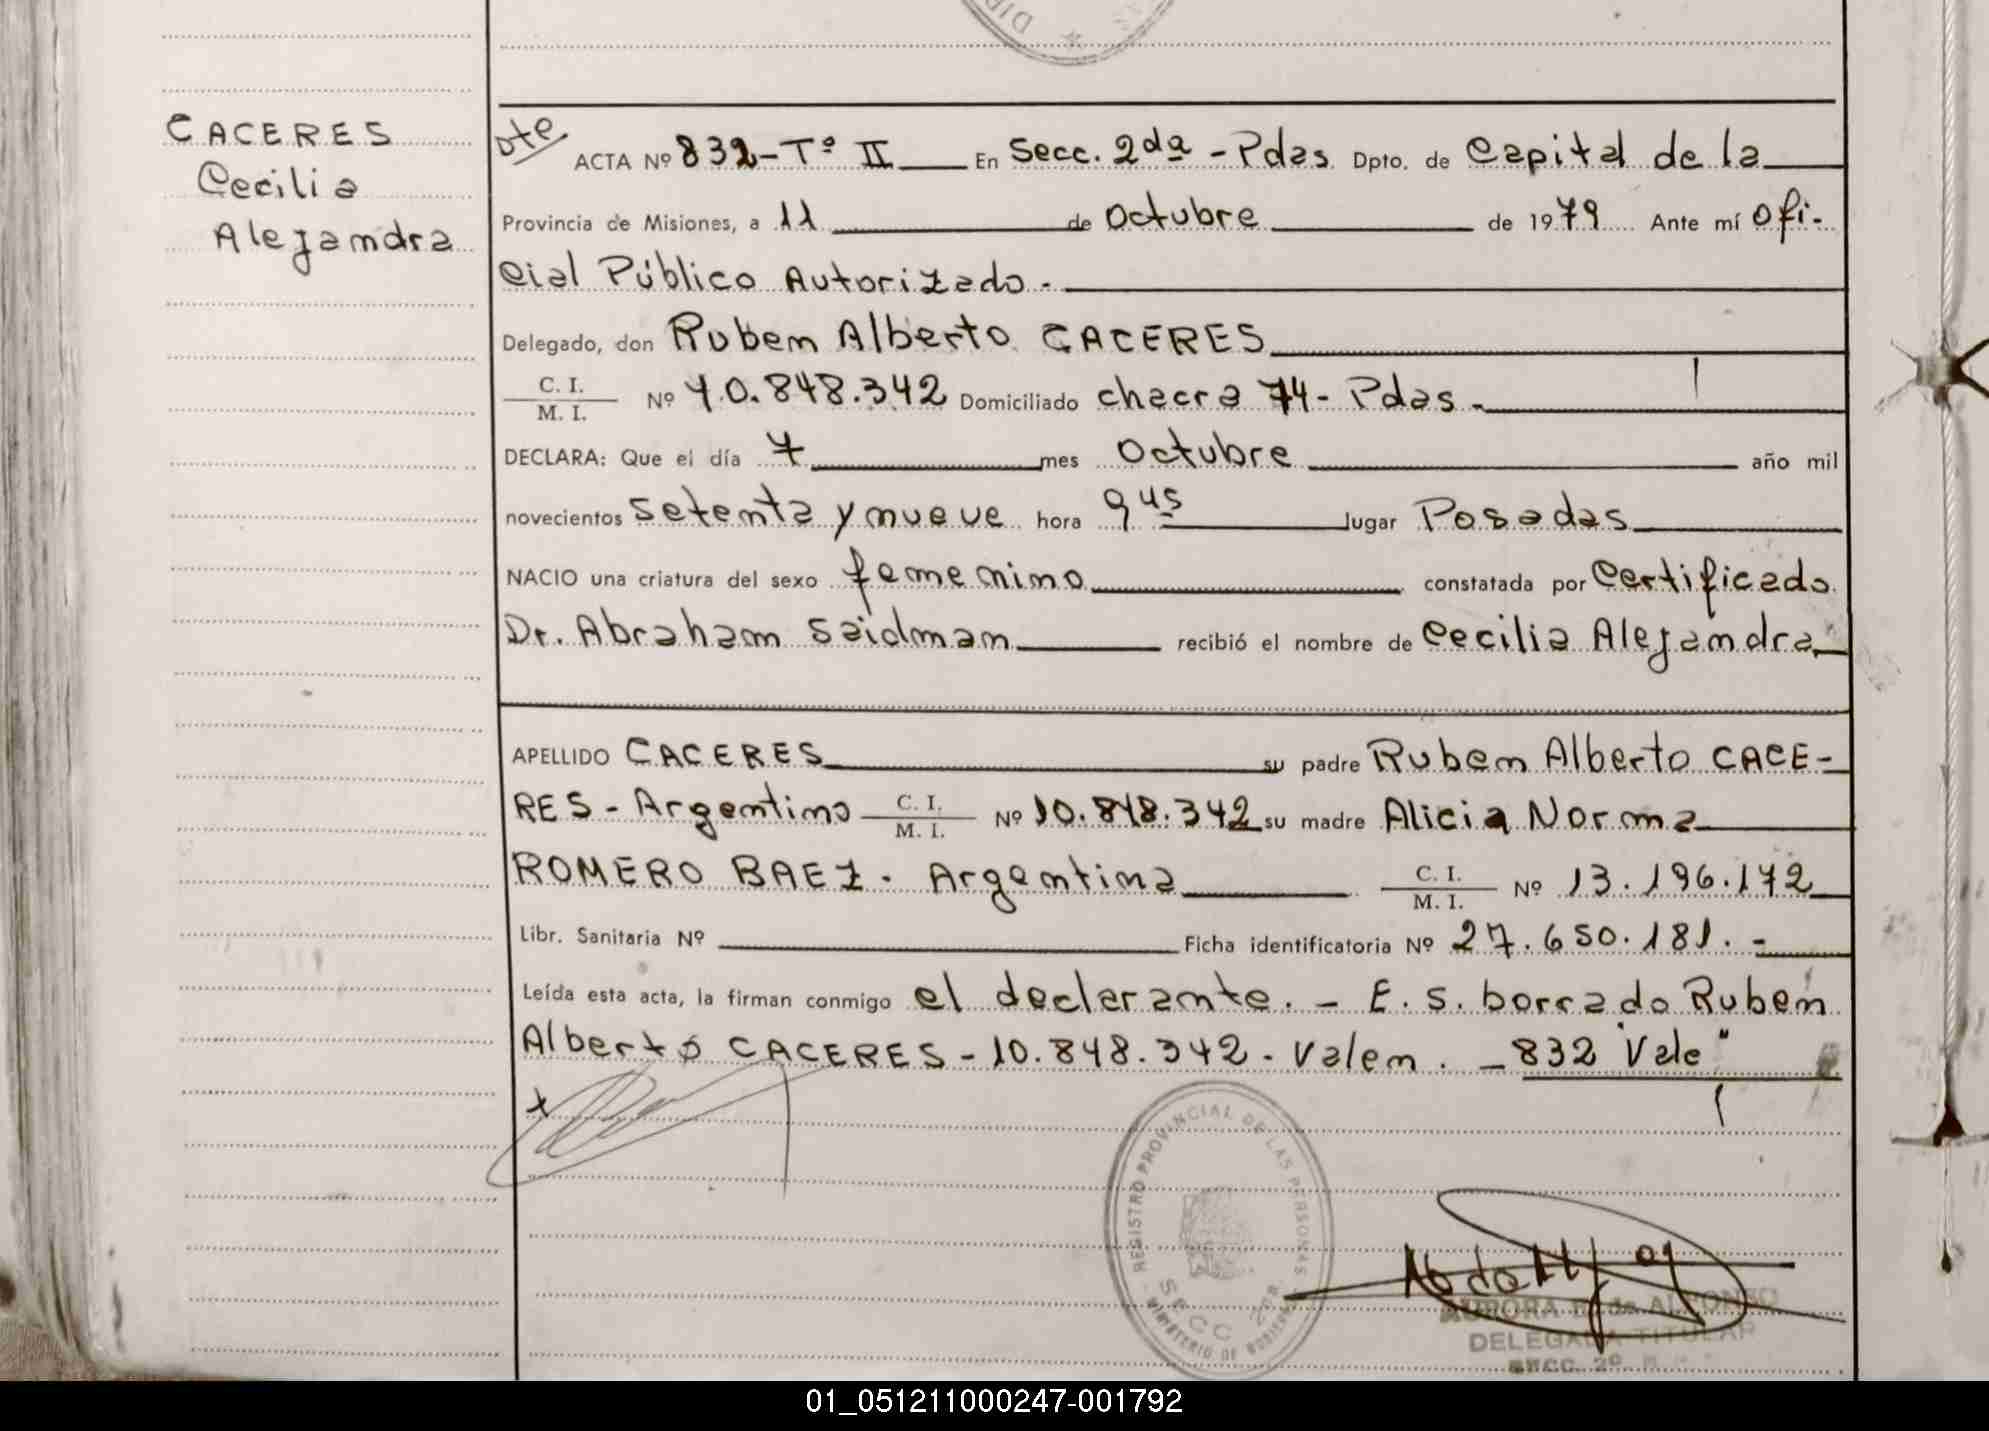 DIR
CACERES
Cecilia
Alejandra
Dte
ACTA Nº 832-Tº II En Secc. 2da - Pdas Dpto. de Capital de la
Provincia de Misiones, a 11 de Octubre de 1979 Ante mí Ofi-
cial Público Autorizado.-
Delegado, don Ruben Alberto CACERES
C. I.
M. I. Nº 10.848.342 Domiciliado chacra 74 - Pdas.-
DECLARA: Que el día 7 mes Octubre año mil
novecientos setenta y nueve hora 9 45 lugar Posadas
NACIO una criatura del sexo femenino constatada por Certificado
Dr. Abraham Saidman recibió el nombre de Cecilia Alejandra
APELLIDO CACERES su padre Ruben Alberto CACE-
RES - Argentino C. I. M. I. Nº 10.848.342 su madre Alicia Norma
ROMERO BAEZ. Argentina C. I. M. I. Nº 13.196.172
Libr. Sanitaria Nº Ficha identificatoria Nº 27.650.181.-
Leída esta acta, la firman conmigo el declarante. - E. s. borrado Ruben
Alberto CACERES - 10.848.342 - Valen. - 832 "Vale"
REGISTRO PROVINCIAL DE LAS PERSONAS
SECC 2DA
MINISTERIO DE GOBIERNO
AURORA B. de ALFONSO
DELEGADA TITULAR
SECC. 2º
01_051211000247-001792